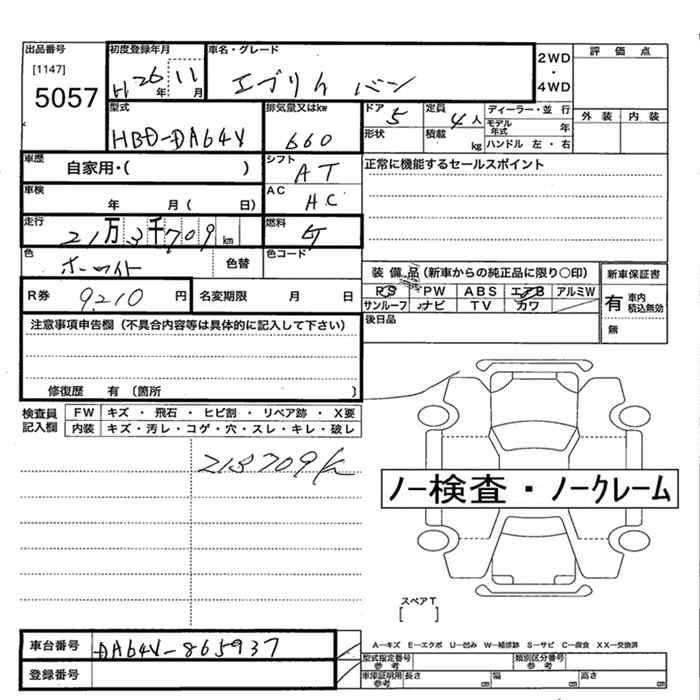 出品番号
[1147]
5057
初度登録年月
H26年 11月
車名・グレード
エブリイ バン
2WD
・
4WD
評価点
外装 内装
型式
HBD-DA64V
排気量又はkw
660
ドア 5
形状
定員 4人
積載 kg
ディーラー・並行
モデル年式 年
ハンドル 左・右
車歴
自家用・( )
シフト
AT
正常に機能するセールスポイント
車検
年 月( 日)
AC
AC
走行
21万3千709km
燃料
色
ホワイト
色替
色コード
装備品(新車からの純正品に限り○印)
PS PW ABS エアB アルミW
サンルーフ ナビ TV カワ
新車保証書
有 車内積込無効
無
R券 9210円
名変期限 月 日
後日品
注意事項申告欄(不具合内容等は具体的に記入して下さい)
修復歴 有(箇所 )
検査員記入欄
FW キズ・飛石・ヒビ割・リペア跡・X要
内装 キズ・汚レ・コゲ・穴・スレ・キレ・破レ
213709K
ノー検査・ノークレーム
スペアT
[ ]
車台番号
DA64V-865937
登録番号
A-キズ E-エクボ U-凹み W-補修跡 S-サビ C-腐食 XX-交換済
型式指定番号参考
類別区分番号参考
車庫証明用参考 長さ cm 幅 cm 高さ cm